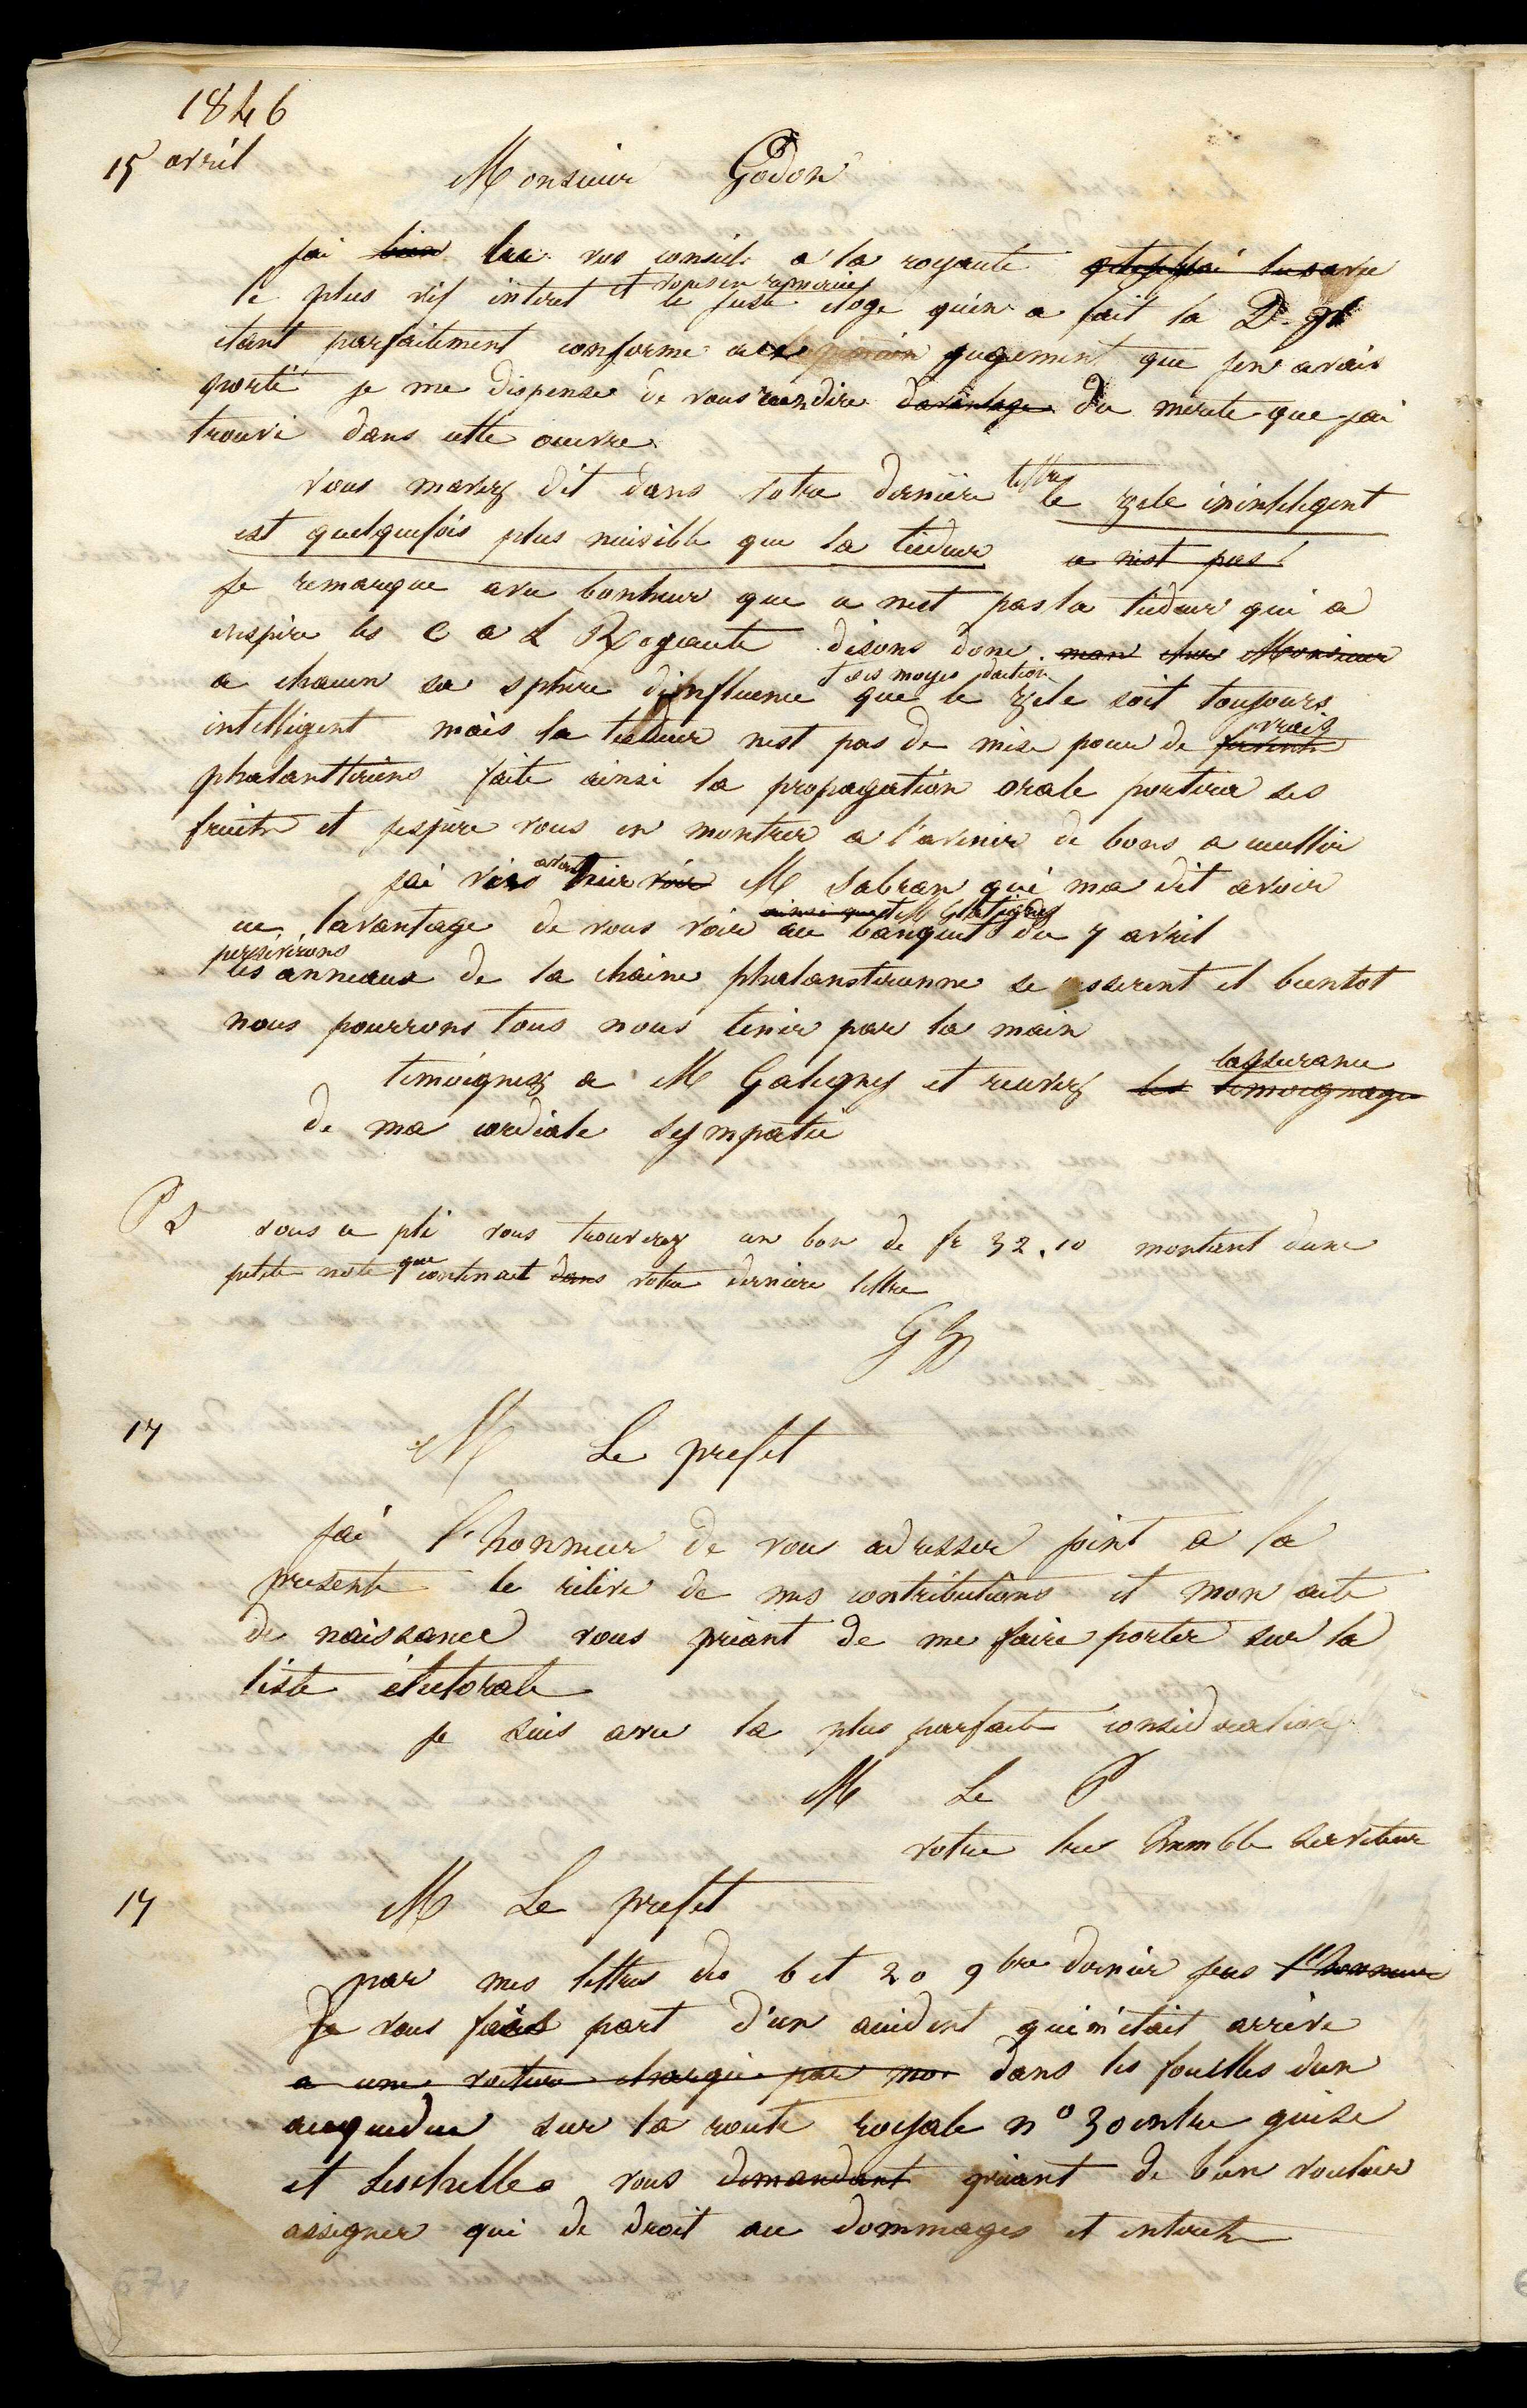 1846
15 avril
Monsieur Godon
jai bien lu vos conseils a la royauté avec
le plus vif interet et vous en remercie le juste eloge quen a fait la D. 
etant parfaitement conforme au jugement que jen avais
porté je me dispense de vous rien dire davantage du merite que jai
trouvé dans cette œuvre
vous mavez dit dans votre dernière lettre le zele inintelegent
est quelquefois plus nuisible que la tiedeur ce nest pas
je remarque avec bonheur que ce nest pas la tiedeur qui a
inspire les C a L Royauté disons donc mon cher Monsieur
a chacun sa sphere dinfluence & ses moyes daction que le zele soit toujours
intelligent mais la tiedeur nest pas de mise pour de fervents vrais
phalanstériens faite ainsi la propagation orale portera ses
fruits et jespère vous en montrer a l'avenir de bons a cueillir
jai vu avant hier M Sabran qui ma dit avoir
eu lavantage de vous voir ainsi que M Galigny au banquet du 7 avril
persévérons
les anneaux de la chaine phalansterienne se resserent et bientot
nous pourrons tous nous tenir par la main
temoignez a M Galigny et recevez les temoignages lassurance
de ma cordiale sympatie
PS sous ce pli vous trouverez un bon de fr 32.10 montant dune
petite note que contenait dans votre derniere lettre
G
17
M Le prefet
jai l'honneur de vous adresser joint a la
presente le rélévé de mes contributions et mon acte
de naissance vous priant de me faire porter sur la
liste éléctorale
je suis avec la plus parfaite considération
M Le P
votre tres humble serviteur
17
M Le prefet
par mes lettres des 6 et 20 9bre dernier jeus l'honneur
de vous faire part d'un accident qui m'était arrivé
a une voiture chargée par moi dans les fouilles dun
acqueduc sur la route royale n° 30 entre guise
et Leschelles vous demandant priant de bien vouloir
assigner qui de droit au dommages et interets
67v